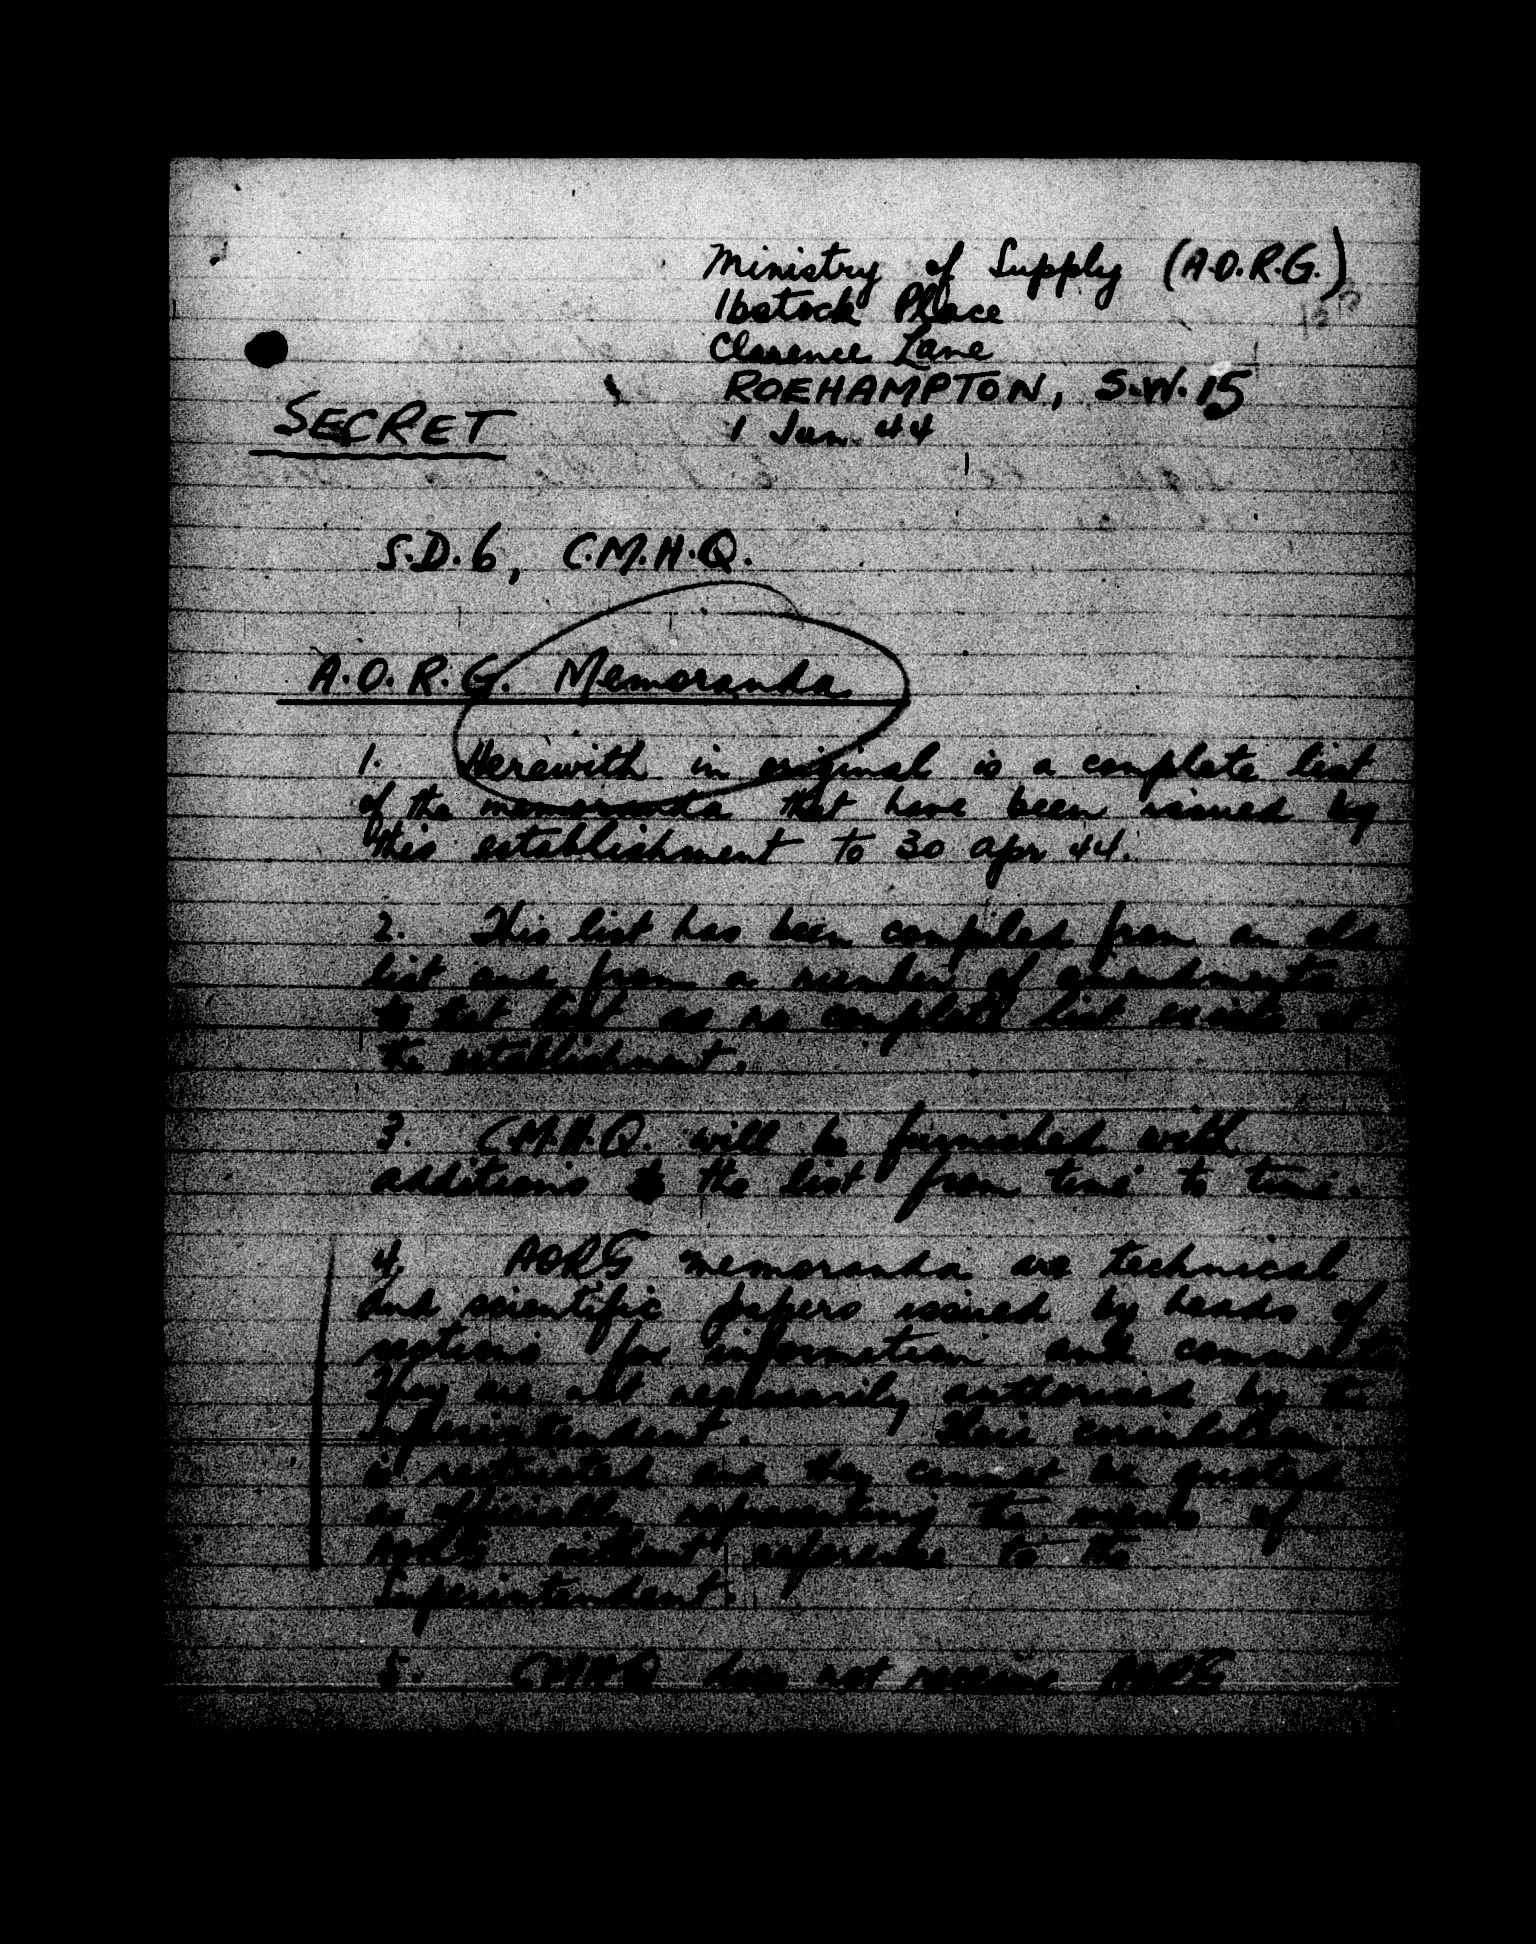 Ministry of Supply (A.O.R.G.)
Ibstock Place
Clarence Lane
ROEHAMPTON, S.W. 15
SECRET
1 Jun 44
S.D.6, C.M.H.Q.
A.O.R.G. Memoranda
1. Herewith in original is a complete list
of the memoranda that have been issued by
this establishment to 30 Apr 44.
2. This list has been compiled from an old
list and from a number of amendments
to that list as no complete list exists at
the establishment.
3. C.M.H.Q. will be furnished with
additions to the list from time to time.
4. AORG memoranda are technical
and scientific papers issued by heads of
sections for information and comments.
They are not necessarily authorised by the
Superintendent. Their circulation
is restricted and they cannot be quoted
as officially representing the views of
AORG without reference to the
Superintendent.
5. CMHQ does not receive AORG